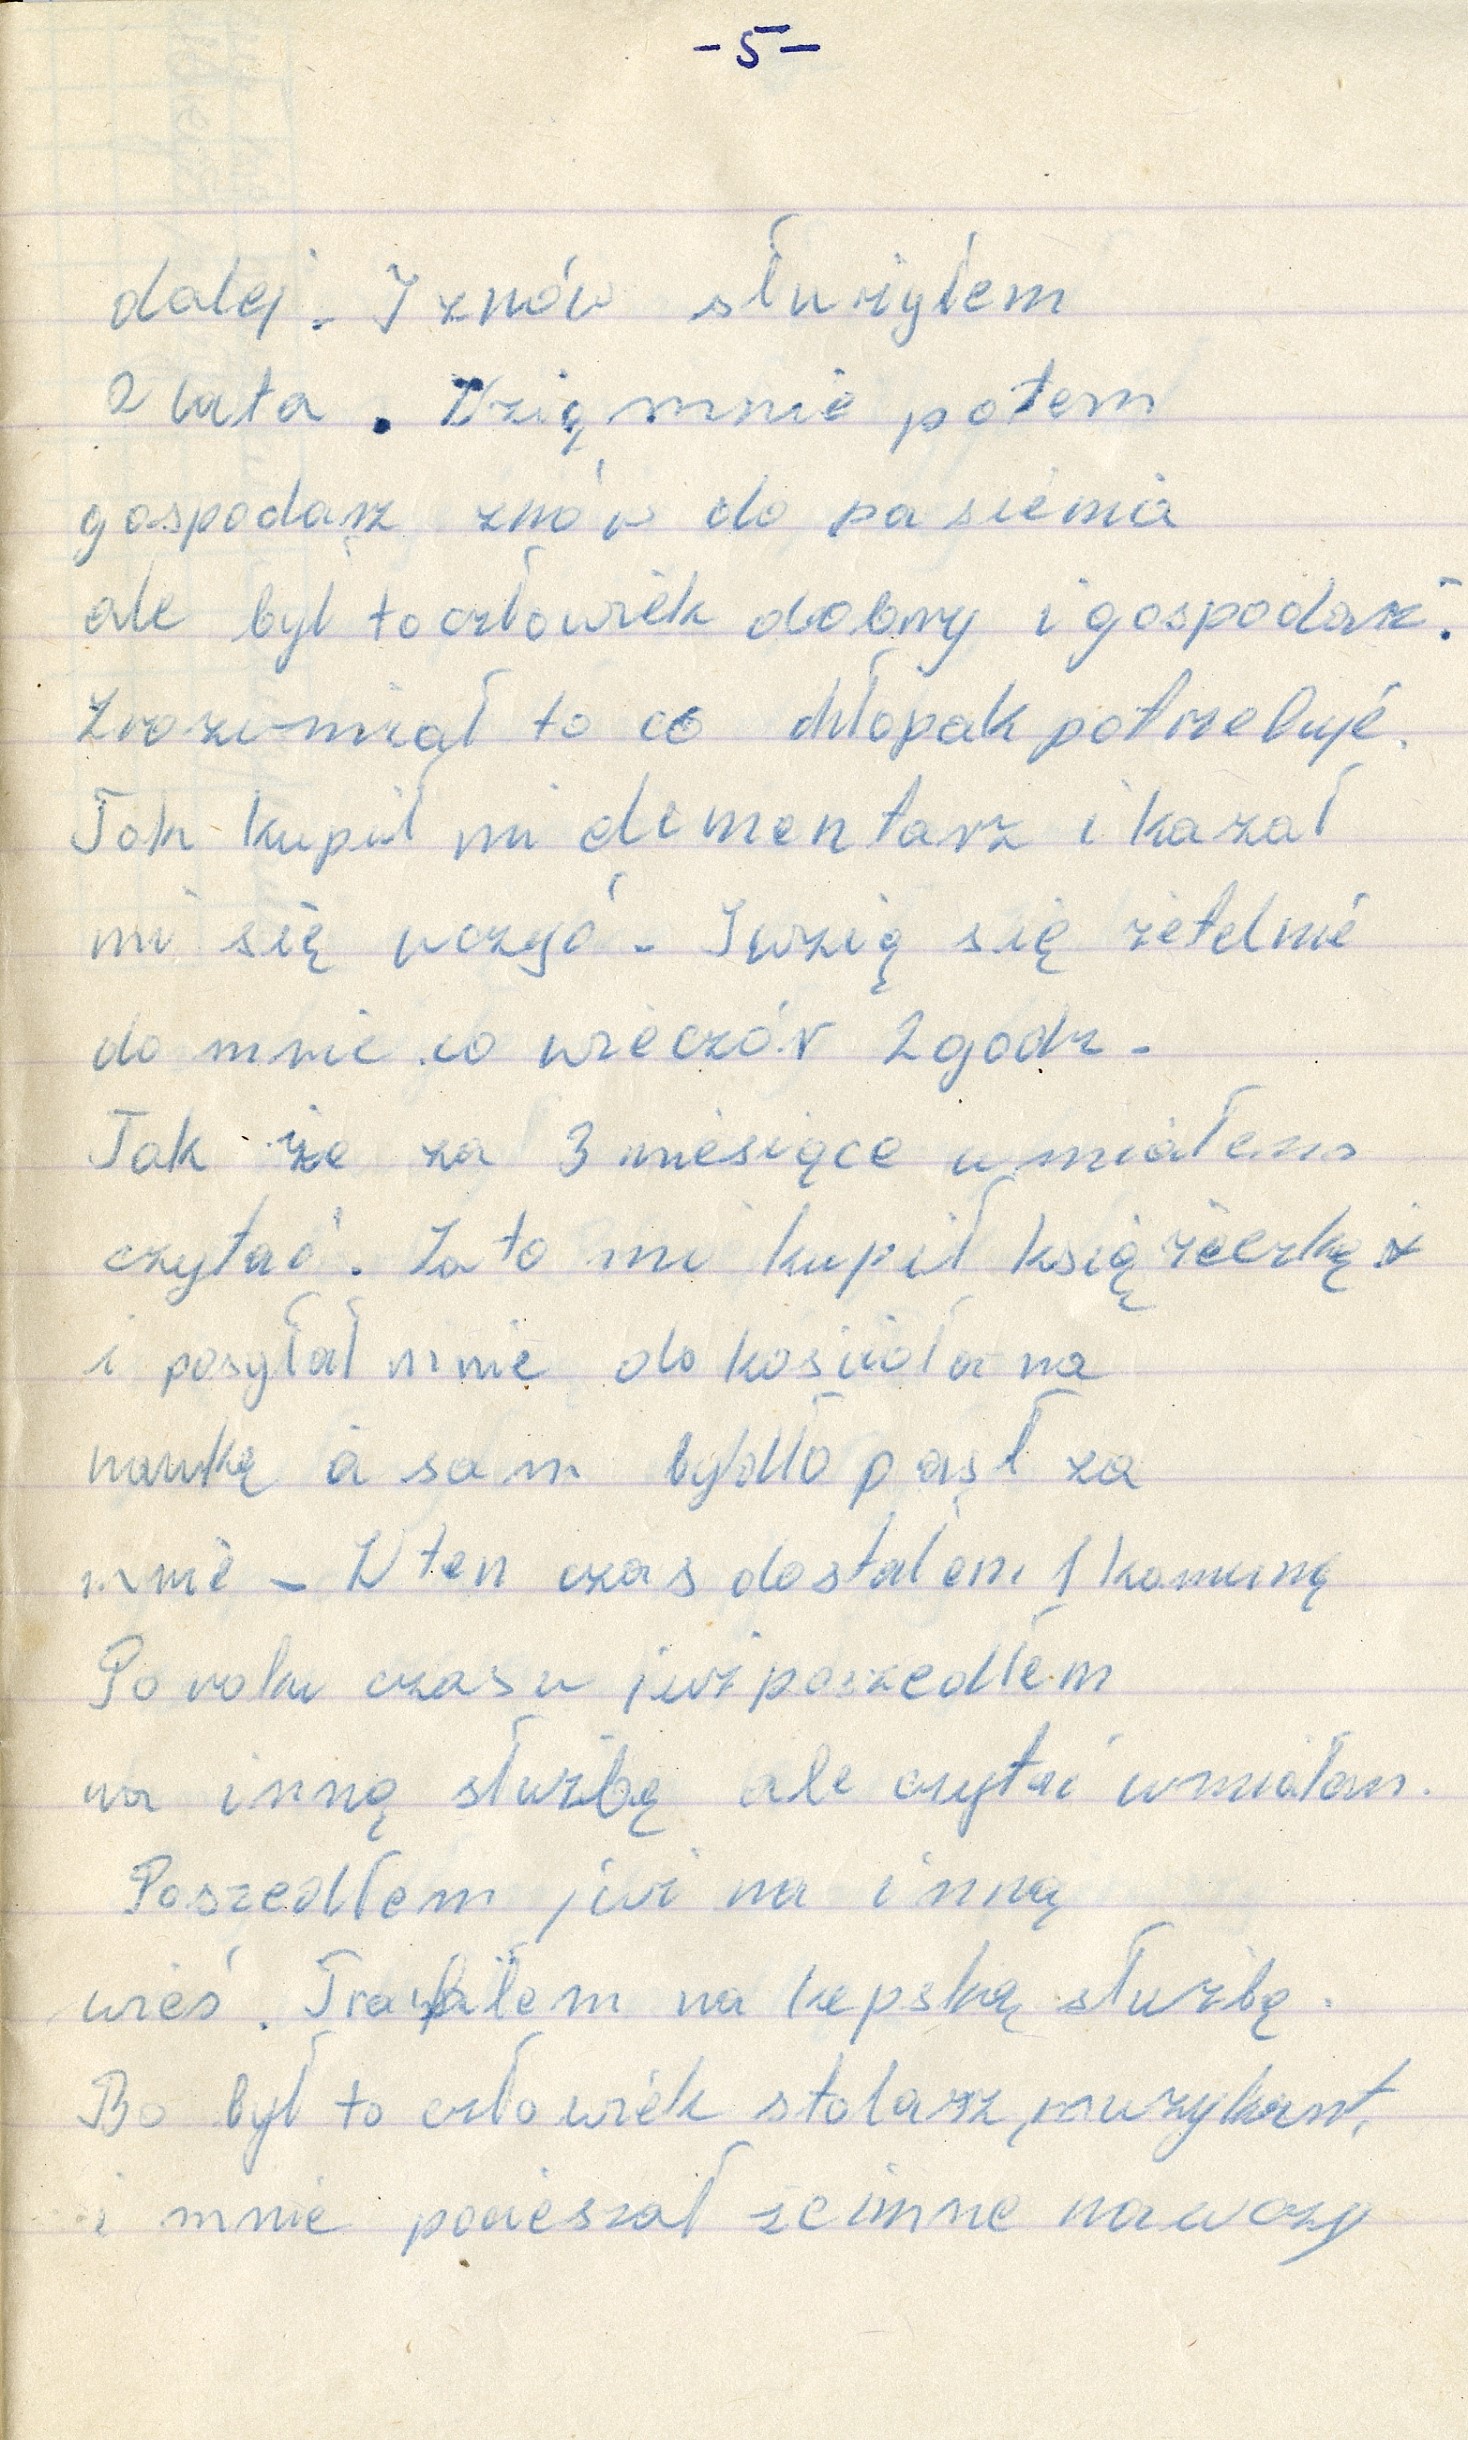 -5-
dalej. I znów słurzyłem
2 lata. Wzią mnie potem
gospodarz znów do pasienia
ale był to człowiek dobry i gospodarz.
Zrozumiał to co chłopak potrzebuje.
Tak kupił mi elementarz i kazał
mi się uczyć. I wzią się rzetelnie
do mnie co wieczór 2 godz.
Tak że za 3 miesiące umiałem
czytać. Za to mi kupił książeczkę
i posyłał mnie do kościoła na
naukę a sam bydło pasł za
mnie. W ten czas dostałem 1 komunię
Po roku czasu już poszedłem
na inną służbę ale czytać umiałem.
Poszedłem już na inną
wieś. Trafiłem na kepską służbę.
Bo był to człowiek stolarz, muzykant,
i mnie pocieszał że inne nauczy